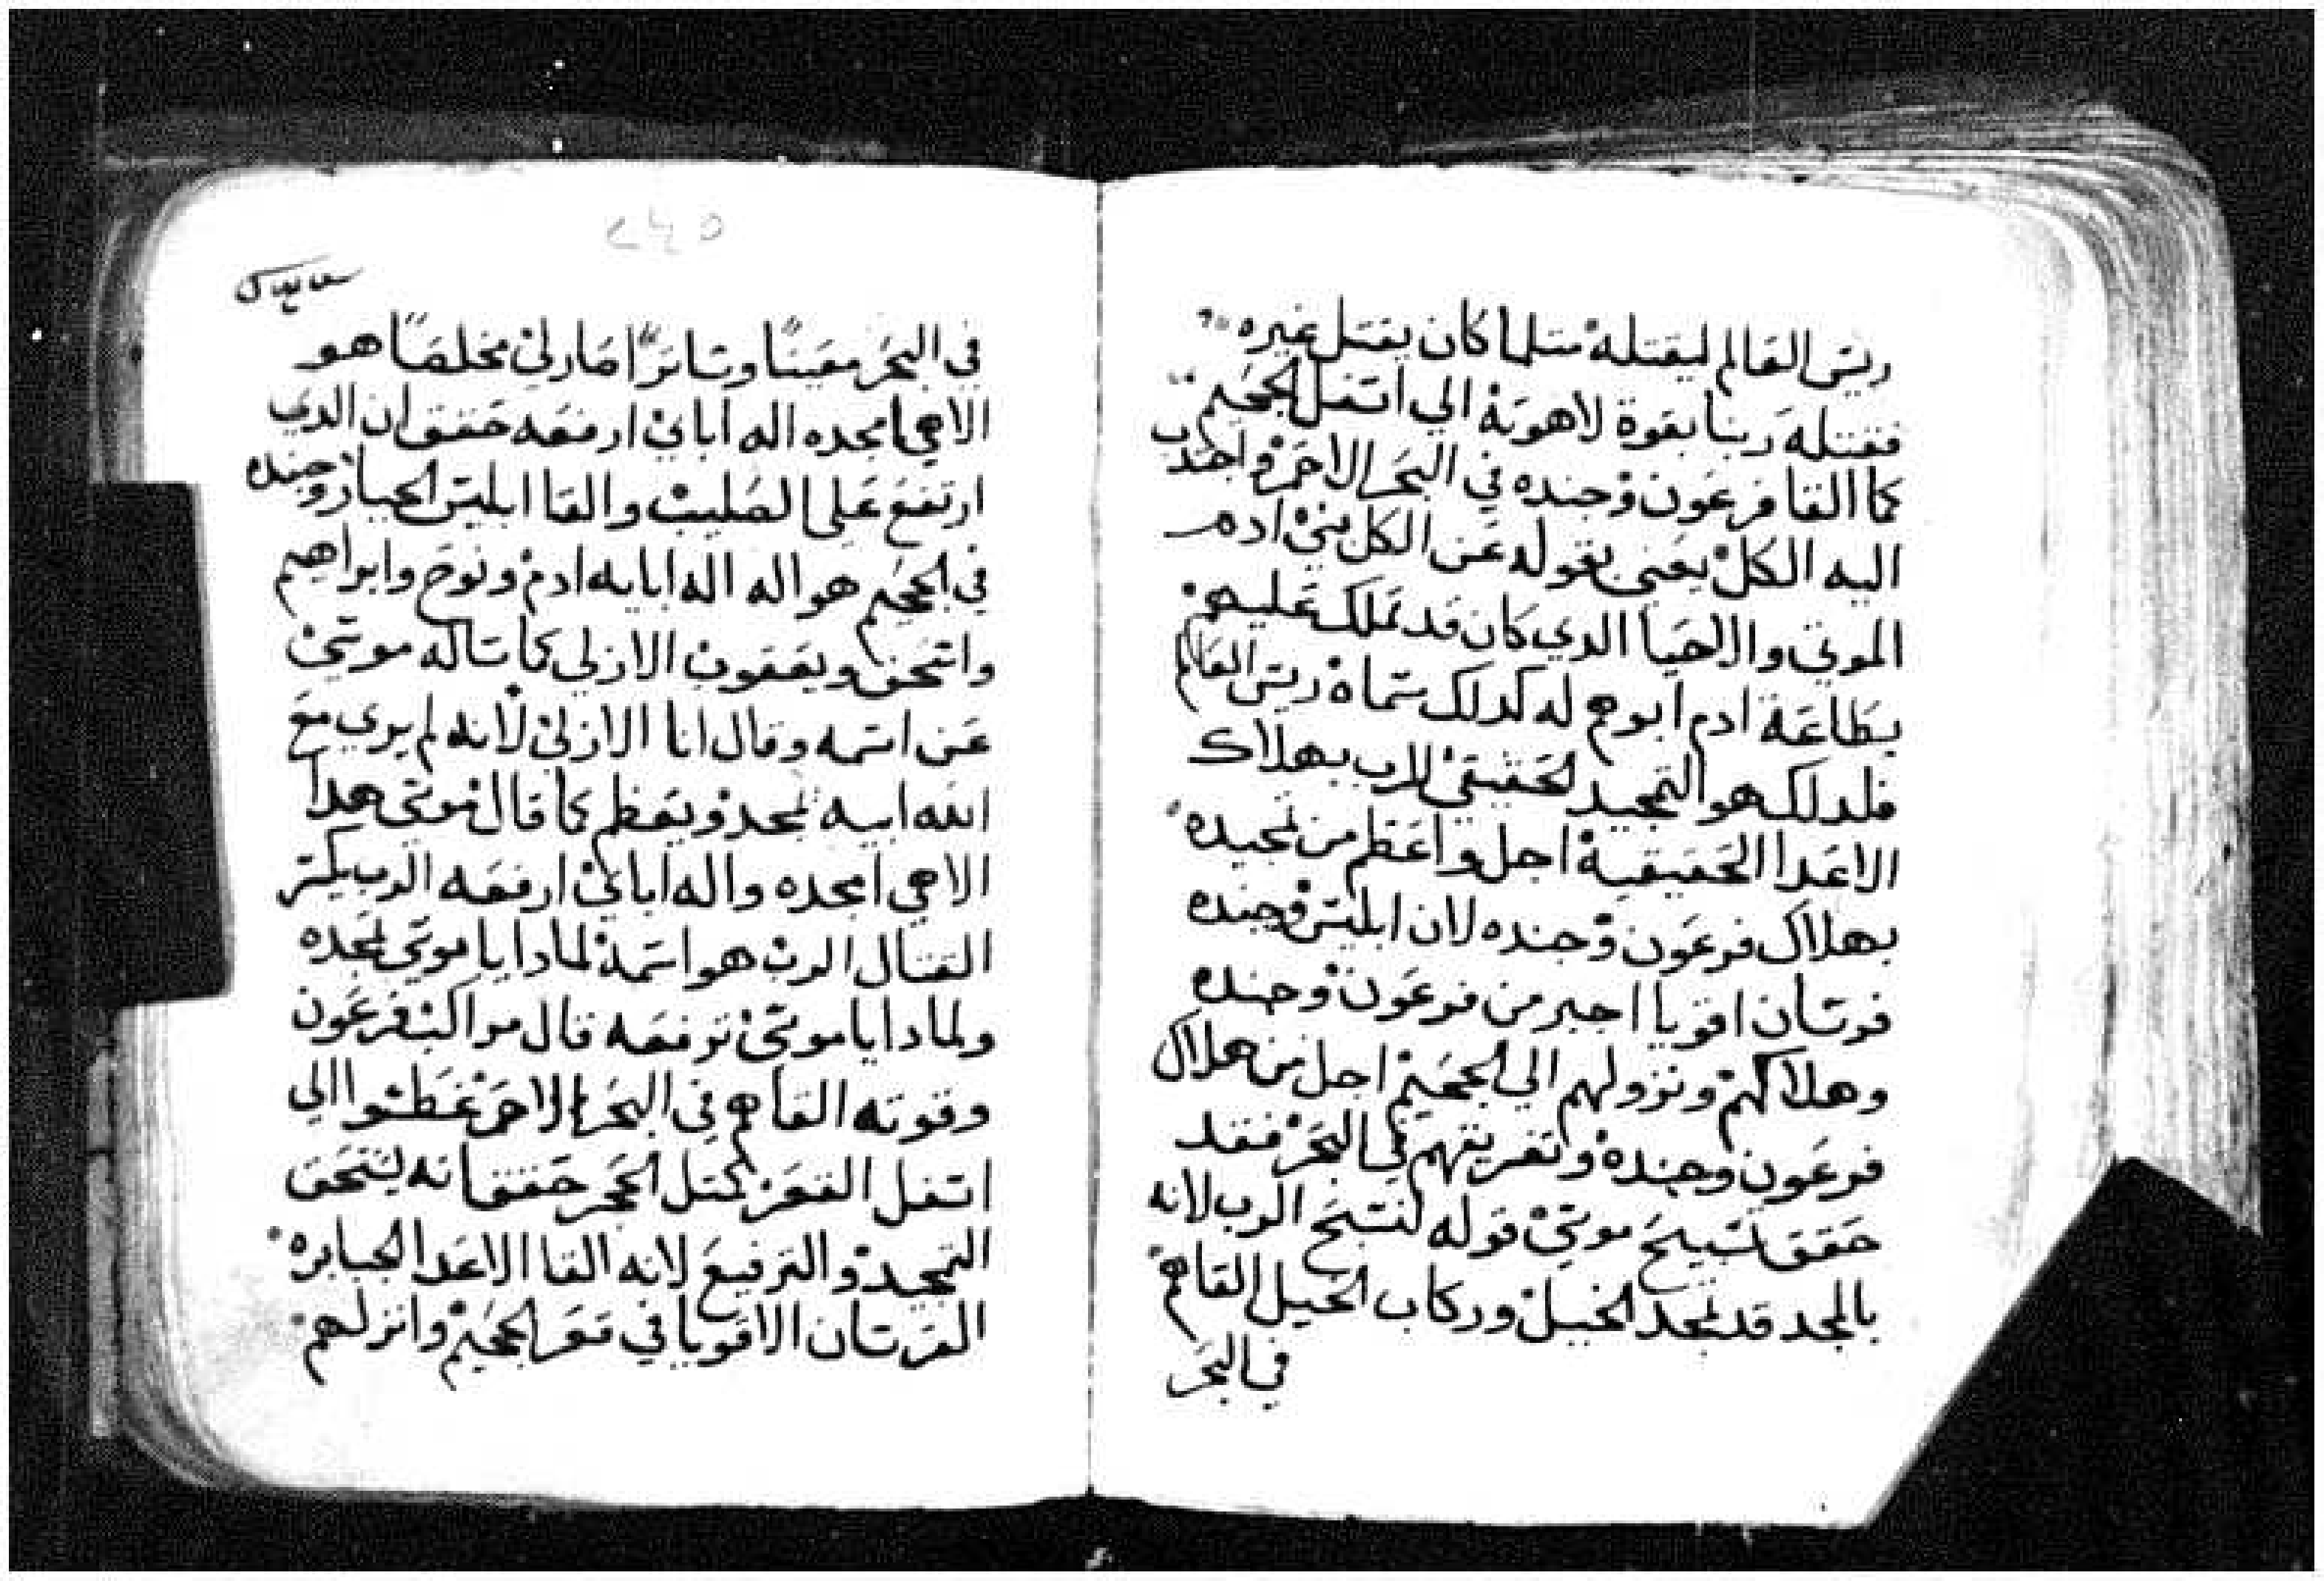 ريس العالم ليقتله متلما كان يقتل غيره
فقتله ربنا بقوة لاهوته الي اتفل الجحيم
كما القا فرعون وجنده في البحر الاحمر واجدب
اليه الكل يعني بقوله عن الكل بني ادم
الموتي والاحيا الدي كان قد تملك عليهم
بطاعة ادم ابوهم له كدلك سماه ريس العالم
فلدلك هو التمجيد الحقيقي للرب بهلاك
الاعدا الحقيقية اجل واعظم من تمجيده
بهلاك فرعون وجنده لان ابليس وجنده
فرسان اقويا اجبر من فرعون وجنده
وهلاكهم ونزولهم الي الجحيم اجل من هلاك
فرعون وجنده وتغريقهم في البحر فقد
حقق تسبيح موسي قوله لنسبح الرب لانه
بالمجد قد تمجد الخيل وركاب الخيل القاهم
في البحر
٢٤٥
في البحر معينا وساترا صار لي مخلصا هو
الاهي امجده اله اباي ارفعه حقق ان الدي
ارتفع علي الصليب والقا ابليس الجبار وجنده
في الجحيم هو اله اله ابايه ادم ونوح وابراهيم
واسحق ويعقوب الازلي كما ساله موسي
عن اسمه وقال انا الازلي لانه لم يري مع
الله ابيه تمجد وتعظم كما قال موسي هدا
الاهي امجده واله اباي ارفعه الرب يكسر
القتال الرب هو اسمه لمادا يا موسي تمجده
ولمادا يا موسي ترفعه قال مراكب فرعون
وقوته القاهم في البحر الاحمر غطسوا الي
اسفل القعر كمتل الحجر حقق انه يستحق
التمجيد والترفيع لانه القا الاعدا الجبابره
الفرسان الاقويا في قعر الجحيم وانزلهم